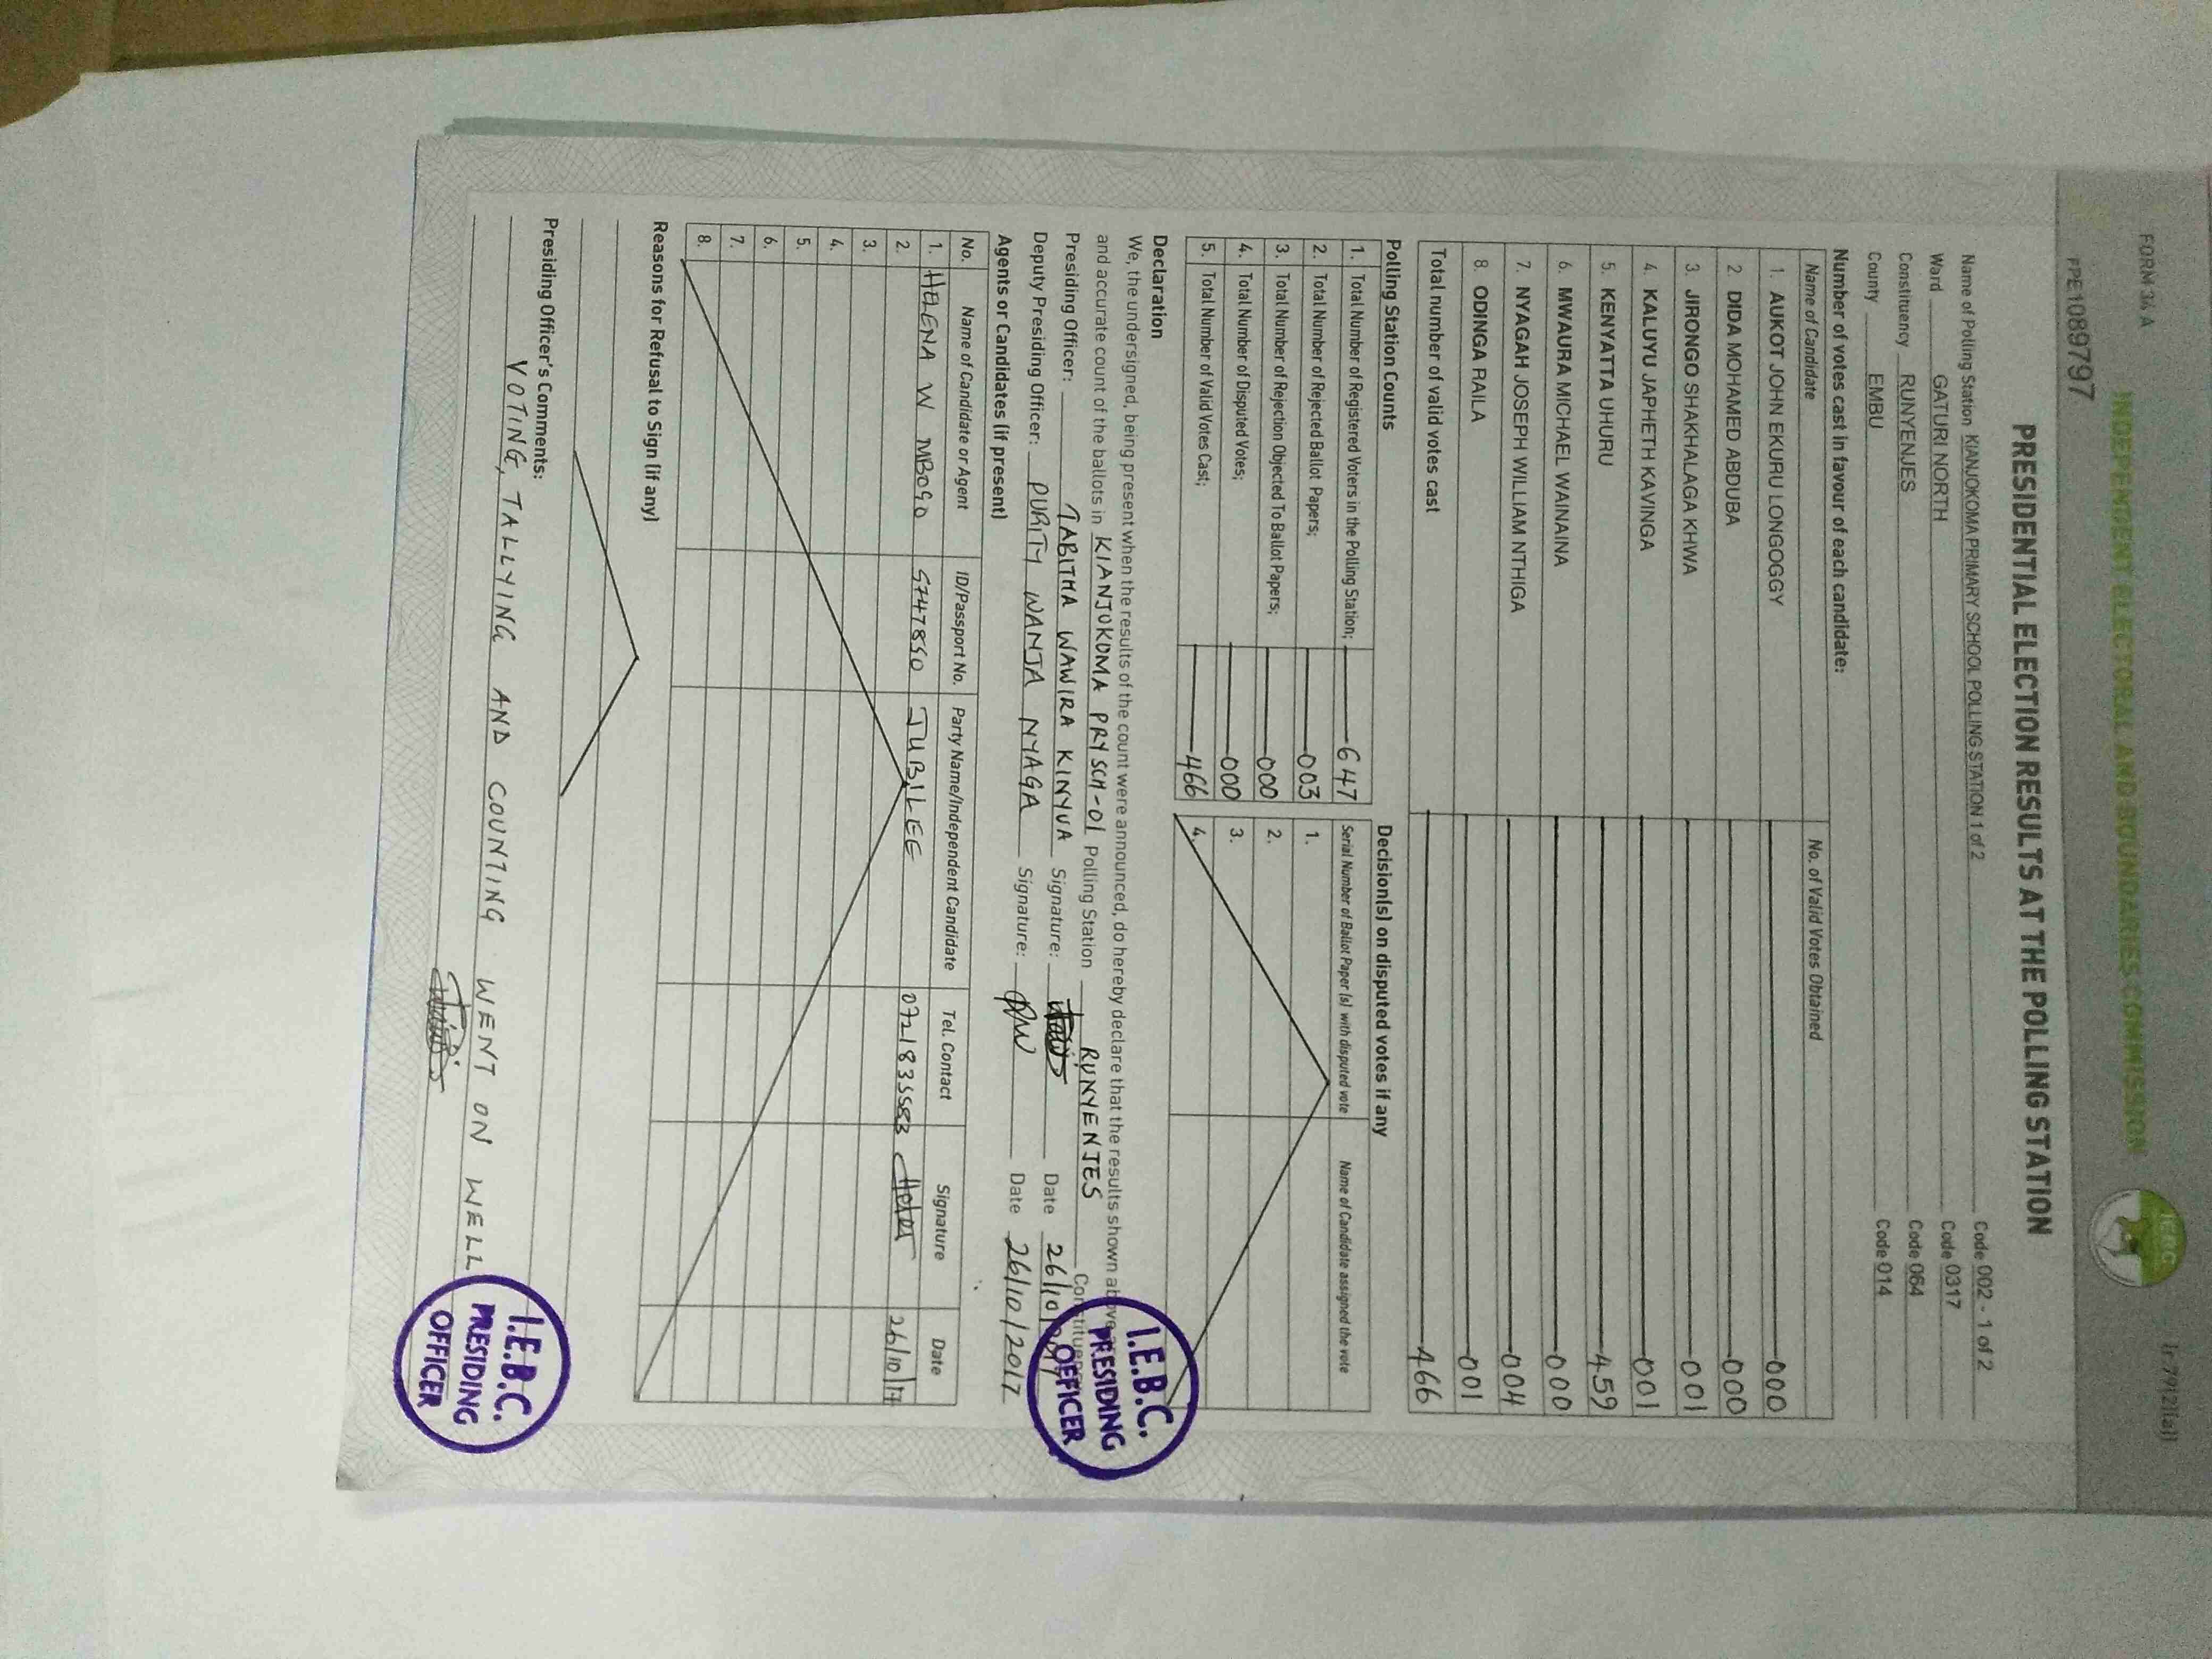 FORM 34 A
INDEPENDENT ELECTORAL AND BOUNDARIES COMMISSION
IEBC
FPE1089797
PRESIDENTIAL ELECTION RESULTS AT THE POLLING STATION
Name of Polling Station KIANJOKOMA PRIMARY SCHOOL POLLING STATION 1 of 2 Code 002 - 1 of 2
Ward GATURI NORTH Code 0317
Constituency RUNYENJES Code 064
County EMBU Code 014
Number of votes cast in favour of each candidate:
Name of Candidate No. of Valid Votes Obtained
1. AUKOT JOHN EKURU LONGOGGY 000
2. DIDA MOHAMED ABDUBA 000
3. JIRONGO SHAKHALAGA KHWA 001
4. KALUYU JAPHETH KAVINGA 001
5. KENYATTA UHURU 459
6. MWAURA MICHAEL WAINAINA 000
7. NYAGAH JOSEPH WILLIAM NTHIGA 004
8. ODINGA RAILA 001
Total number of valid votes cast 466
Polling Station Counts Decision(s) on disputed votes if any
Serial Number of Ballot Paper (s) with disputed vote Name of Candidate assigned the vote
1. Total Number of Registered Voters in the Polling Station; 647
2. Total Number of Rejected Ballot Papers; 003 1.
3. Total Number of Rejection Objected To Ballot Papers; 000 2.
4. Total Number of Disputed Votes; 000 3.
5. Total Number of Valid Votes Cast; 466 4.
Declaration
We, the undersigned, being present when the results of the count were announced, do hereby declare that the results shown above
and accurate count of the ballots in KIANJOKOMA PRY SCH-01 Polling Station RUNYENJES Constituency
Presiding Officer: TABITHA WAWIRA KINYUA Signature: Date 26/10/2017
Deputy Presiding Officer: PURITY WANJA NYAGA Signature: Date 26/10/2017
I.E.B.C.
PRESIDING
OFFICER
Agents or Candidates (if present)
No. Name of Candidate or Agent ID/Passport No. Party Name/Independent Candidate Tel. Contact Signature Date
1. HELENA W MBOGO 5747850 JUBILEE 0721835583 26/10/17
2.
3.
4.
5.
6.
7.
8.
Reasons for Refusal to Sign (if any)
Presiding Officer's Comments:
VOTING, TALLYING AND COUNTING WENT ON WELL
I.E.B.C.
PRESIDING
OFFICER